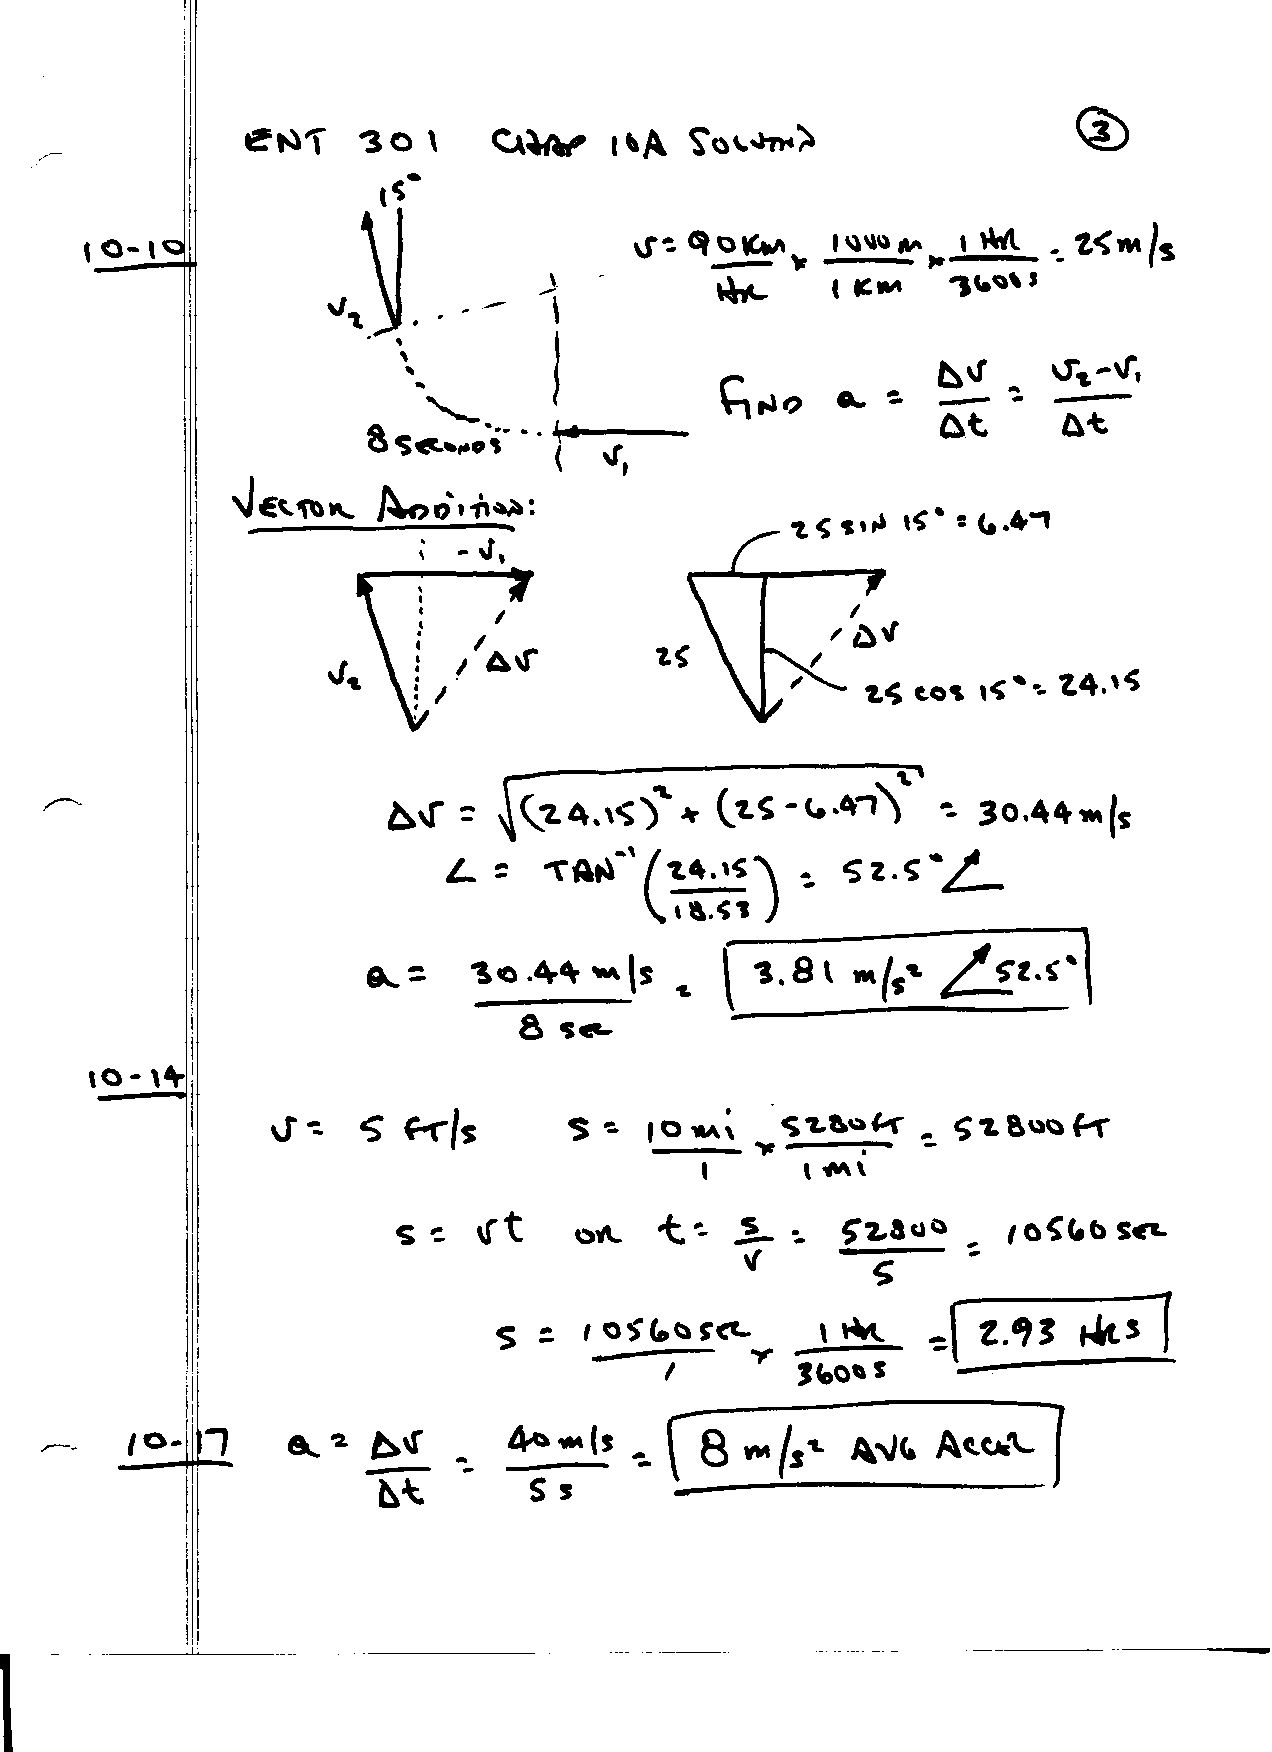 ENT 301 CHAP 10A SOLUTION
3
10-10
15°
V = 90 KM/HR × 1000 M/1 KM × 1 HR/3600 S = 25 m/s
V₂
FIND a = ΔV/Δt = V₂-V₁/Δt
8 SECONDS
V₁
VECTOR ADDITION:
-V₁
25 SIN 15° = 6.47
V₂
ΔV
25
ΔV
25 COS 15° = 24.15
ΔV = √(24.15)² + (25-6.47)² = 30.44 m/s
∠ = TAN⁻¹ (24.15/18.53) = 52.5° ∠
a = 30.44 m/s / 8 SEC = 3.81 m/s² ∠52.5°
10-14
V = 5 FT/S S = 10 mi/1 × 5280 FT/1 mi = 52800 FT
S = Vt OR t = S/V = 52800/5 = 10560 SEC
S = 10560 SEC/1 × 1 HR/3600 S = 2.93 HRS
10-17 a = ΔV/Δt = 40 m/s / 5 s = 8 m/s² AVG ACCEL